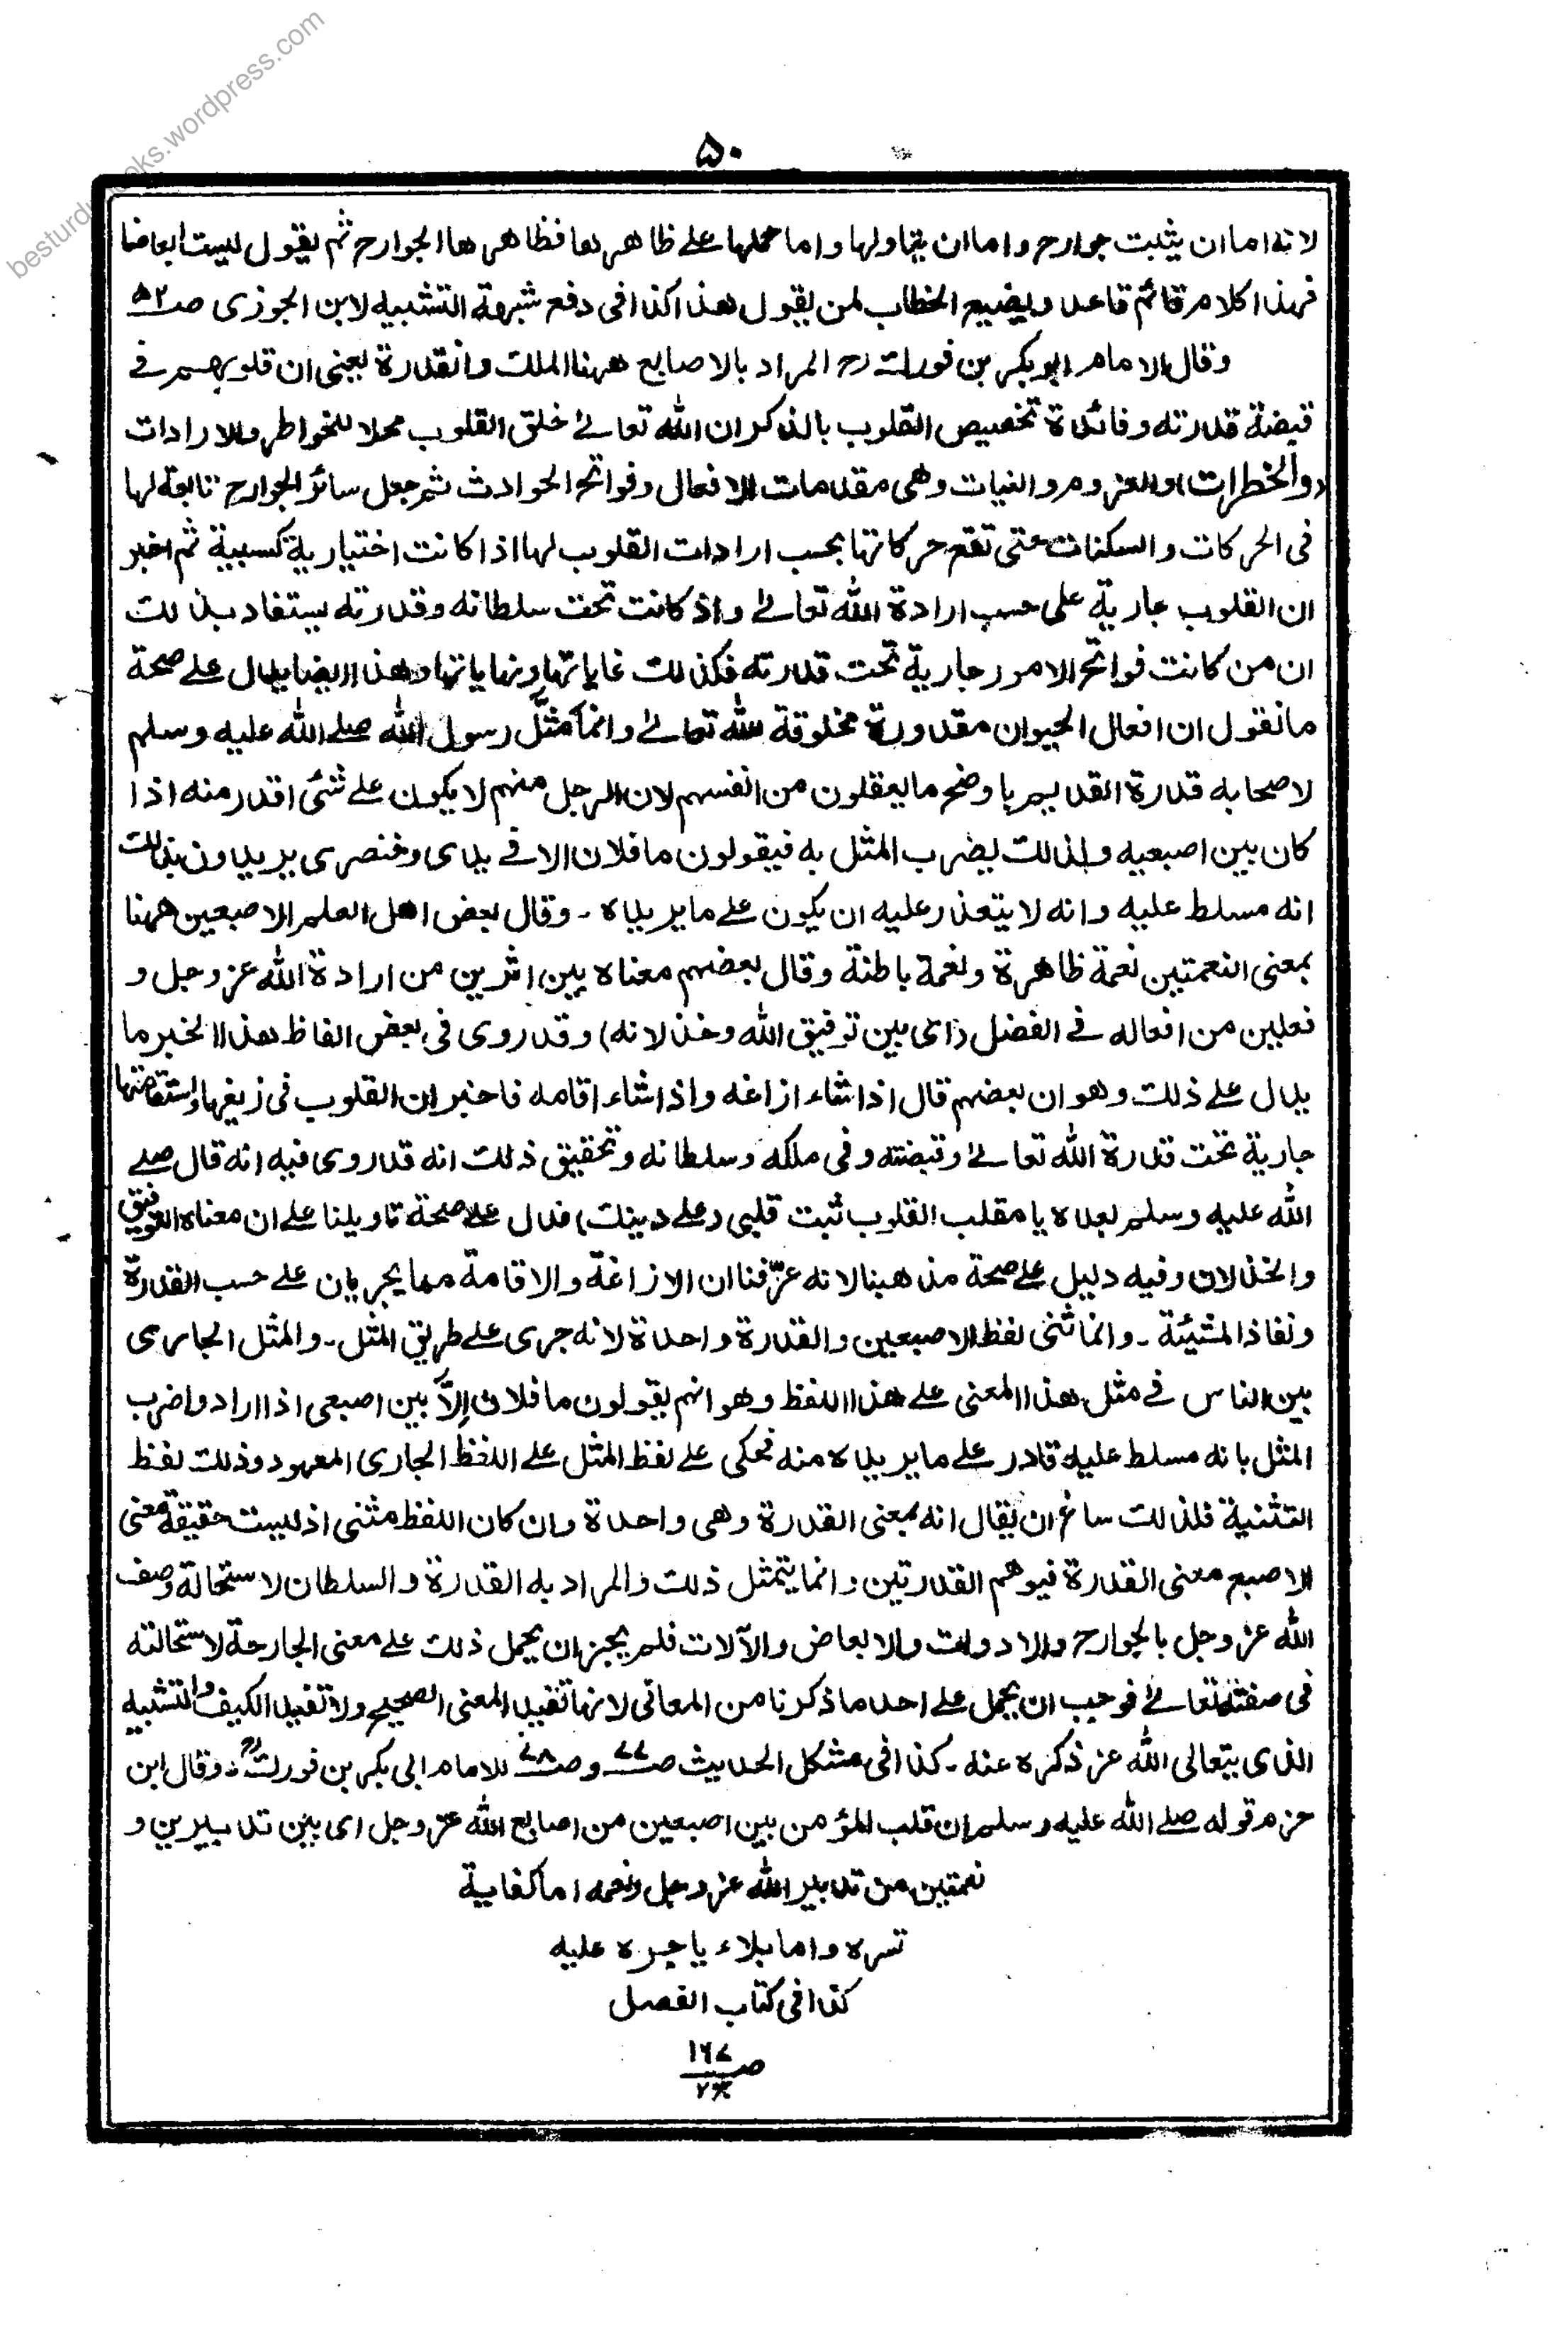 besturdubooks.wordpress.com
۵۰
لانه اما ان يثبت جوارح واما ان يتاولها واما حملها على ظاهرها فظاهرها الجوارح ثم يقول ليست ابعاضا
فهذا كلام قائم قاعد ويضيع الخطاب لمن يقول هذا كذا فى دفع شبهة التشبيه لابن الجوزى صـ۵۲
وقال الامام ابو بكر بن فورك رح المراد بالاصابع ههنا الملك والقدرة يعنى ان قلوبهم فى
قبضة قدرته وفائدة تخصيص القلوب بالذكر ان الله تعالى خلق القلوب محلا للخواطر والارادات
(والخطرات) والعزوم والنيات وهى مقدمات الافعال وفواتح الحوادث ثم جعل سائر الجوارح تابعة لها
فى الحركات والسكنات حتى تقع حركاتها بحسب ارادات القلوب لها اذا كانت اختيارية كسبية ثم اخبر
ان القلوب جارية على حسب ارادة الله تعالى واذ كانت تحت سلطانه وقدرته يستفاد بذلك
ان من كانت فواتح الامور جارية تحت قدرته فكذلك غاياتها ونهاياتها وهذا ايضا يدل على صحة
ما نقول ان افعال الحيوان مقدورة مخلوقة لله تعالى وانما مثّل رسول الله صلى الله عليه وسلم
لاصحابه قدرة القديم باوضح ما يعقلون من انفسهم لان الرجل منهم لا يكون على شئ اقدر منه اذا
كان بين اصبعيه ولذلك يضرب المثل به فيقولون ما فلان الا فى يدى وخنصرى يريدون بذلك
انه مسلط عليه وانه لا يتعذر عليه ان يكون على ما يريده ـ وقال بعض اهل العلم الاصبعين ههنا
بمعنى النعمتين نعمة ظاهرة ونعمة باطنة وقال بعضهم معناه بين اثرين من ارادة الله عز وجل و
فعلين من افعاله فى الفضل (اى بين توفيق الله وخذلانه) وقد روى فى بعض الفاظ هذا الخبر ما
يدل على ذلك وهو ان بعضهم قال اذا شاء ازاغه واذا شاء اقامه فاخبر ان القلوب فى زيغها واستقامتها
جارية تحت قدرة الله تعالى وقبضته وفى ملكه وسلطانه وتحقيق ذلك انه قد روى فيه انه قال صلى
الله عليه وسلم بعده يا مقلب القلوب ثبت قلبى (على دينك) فدل على صحة تاويلنا على ان معناه التوفيق
والخذلان وفيه دليل على صحة مذهبنا لانه عرّفنا ان الازاغة والاقامة مما يجريان على حسب القدرة
ونفاذ المشيئة ـ وانما ثنى لفظ الاصبعين والقدرة واحدة لانه جرى على طريق المثل ـ والمثل الجارى
بين الناس فى مثل هذا المعنى على هذا اللفظ وهو انهم يقولون ما فلان اِلاّ بين اصبعى اذا ارادوا ضرب
المثل بانه مسلط عليه قادر على ما يريده منه فحكى على لفظ المثل على اللفظ الجارى المعهود وذلك لفظ
التثنية فلذلك ساغ ان يقال انه بمعنى القدرة وهى واحدة وان كان اللفظ مثنى اذ ليست حقيقة معنى
الاصبع معنى القدرة فيوهم القدرتين وانما يتمثل ذلك والمراد به القدرة والسلطان لاستحالة وصف
الله عز وجل بالجوارح والادوات والابعاض والآلات فلم يجز ان يحمل ذلك على معنى الجارحة لاستحالته
فى صفته تعالى فوجب ان يحمل على احد ما ذكرنا من المعانى لانها تفيد المعنى الصحيح ولا تفيد الكيف والتشبيه
الذى يتعالى الله عز ذكره عنه ـ كذا فى مشكل الحديث صـ۷۷ وصـ۷۸ للامام ابى بكر بن فورك رح ـ وقال ابن
حزم قوله صلى الله عليه وسلم ان قلب المؤمن بين اصبعين من اصابع الله عز وجل اى بين تدبيرين و
نعمتين من تدبير الله عز وجل ونعمه اما كفاية
تسره واما بلاء ياجره عليه
كذا فى كتاب الفصل
صـ ۱۶۷